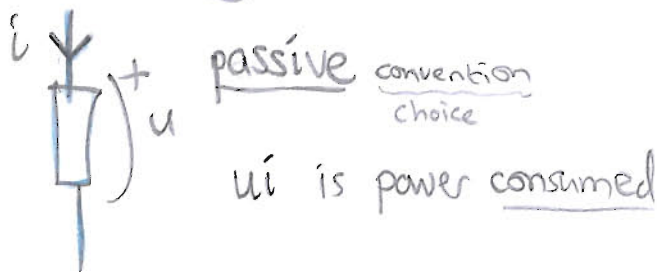 i
+
u
passive convention
choice
ui is power consumed